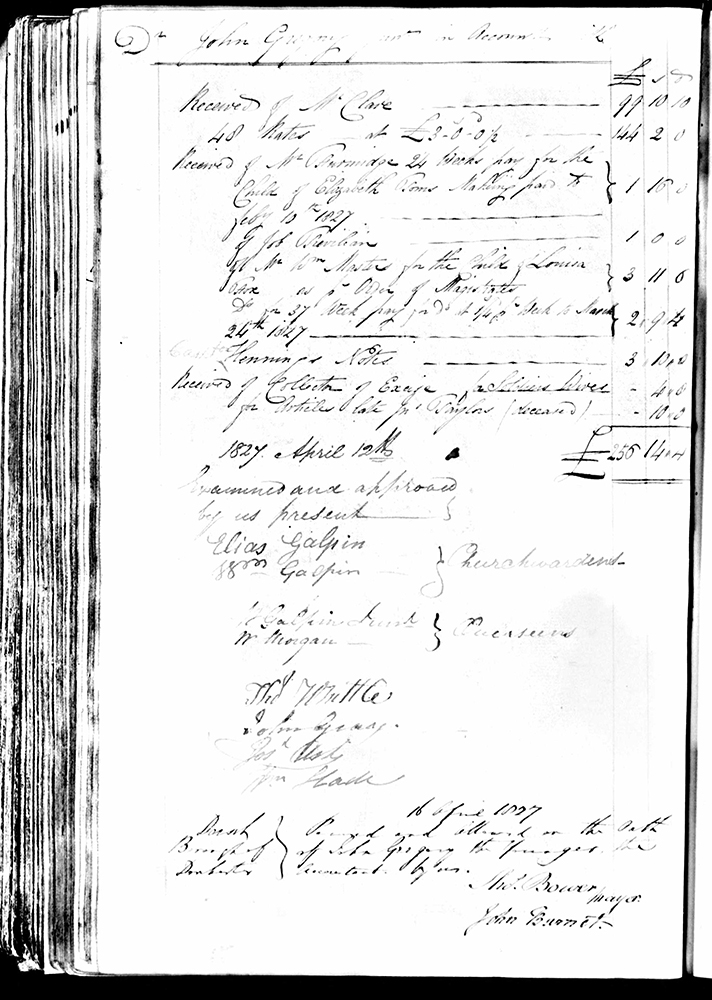 Dr John Gregory junr in Account
£ s d
Received of Mr Clare 99 10 10
48 Rates at £3-0-0½ 144 2 0
Received of Mr Burnidge 24 Weeks pay for the
Child of Elizabeth Toms Making paid to 1 16 0
Feby 10th 1827
of Job 1 0 0
of Mr Wm Masters for the Child of Louisa
Fox as pr Order of Magistrates 3 11 6
Do for 37 Week pay for Do at 1/4 pr Week to March
24th 1827 2 9 4
Hennings Notes 3 10 0
Received of Collector of Excise for Soldiers Wives - 4 0
for Articles late Taylors (deceased) - 10 0
1827 April 12th £ 256 14 4
Examined and approved
by us present
Elias Galpin
Wm Galpin Churchwardens
Galpin Junr
W Morgan Overseers
Thos Whittle
John Gray
Josh
Wm Slade
16 April 1827
Dorset Proved and allowed on the Oath
Borough of of John Gregory the younger the
Dorchester Accountant by us.
Thos Bower Mayor
John Burnet